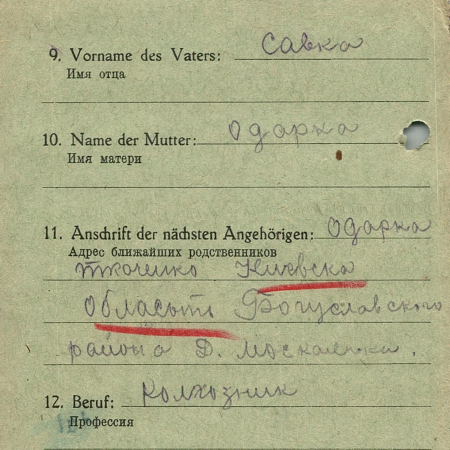 9. Vorname des Vaters: Савка
Имя отца
10. Name der Mutter: Одарка
Имя матери
11. Anschrift der nächsten Angehörigen: Одарка
Адрес ближайших родственников
Ткоченко Киевска
Обласьть Богуславского
района Д. Москаленка.
12. Beruf: Колхозник
Профессия